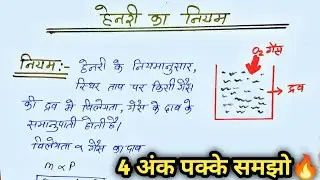 हेनरी का नियम
नियम:- हेनरी के नियमानुसार,
स्थिर ताप पर किसी गैस
की द्रव में विलेयता, गैस के दाब के
समानुपाती होती है।
विलेयता ∝ गैस का दाब
m ∝ P
O₂ गैस
द्रव
4 अंक पक्के समझो🔥